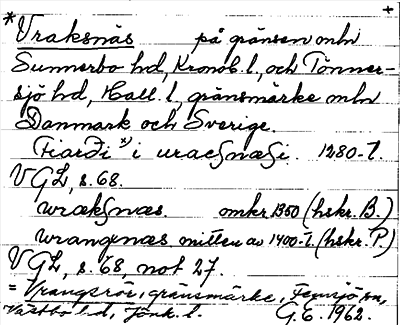 *Vraksnäs på gränsen mln +
Sunnerbo hd, Kronob. l, och Tönner-
sjö hd, Hall. l, gränsmärke mln
Danmark och Sverige.
Fiarði *) i uracsnæsi. 1280-t.
VGL, s. 68.
wræksnæs. omkr. 1350 (hskr. B.)
wrangenæs mitten av 1400-t. (hskr. P.)
VGL, s. 68, not 27.
= Vrangsrör, gränsmärke, Femsjö sn,
Västbo hd, Jönk. l. G.E. 1962.